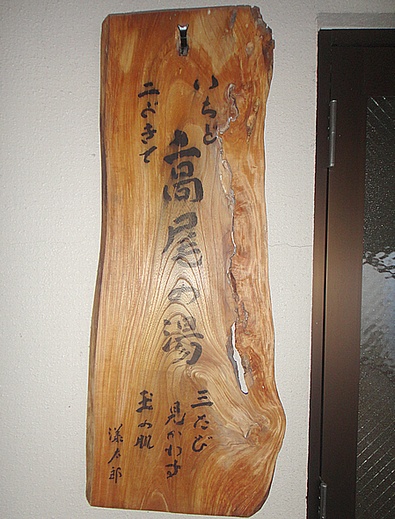 いちど
二どきて
高尾の湯
三たび
見かわす
玉の肌